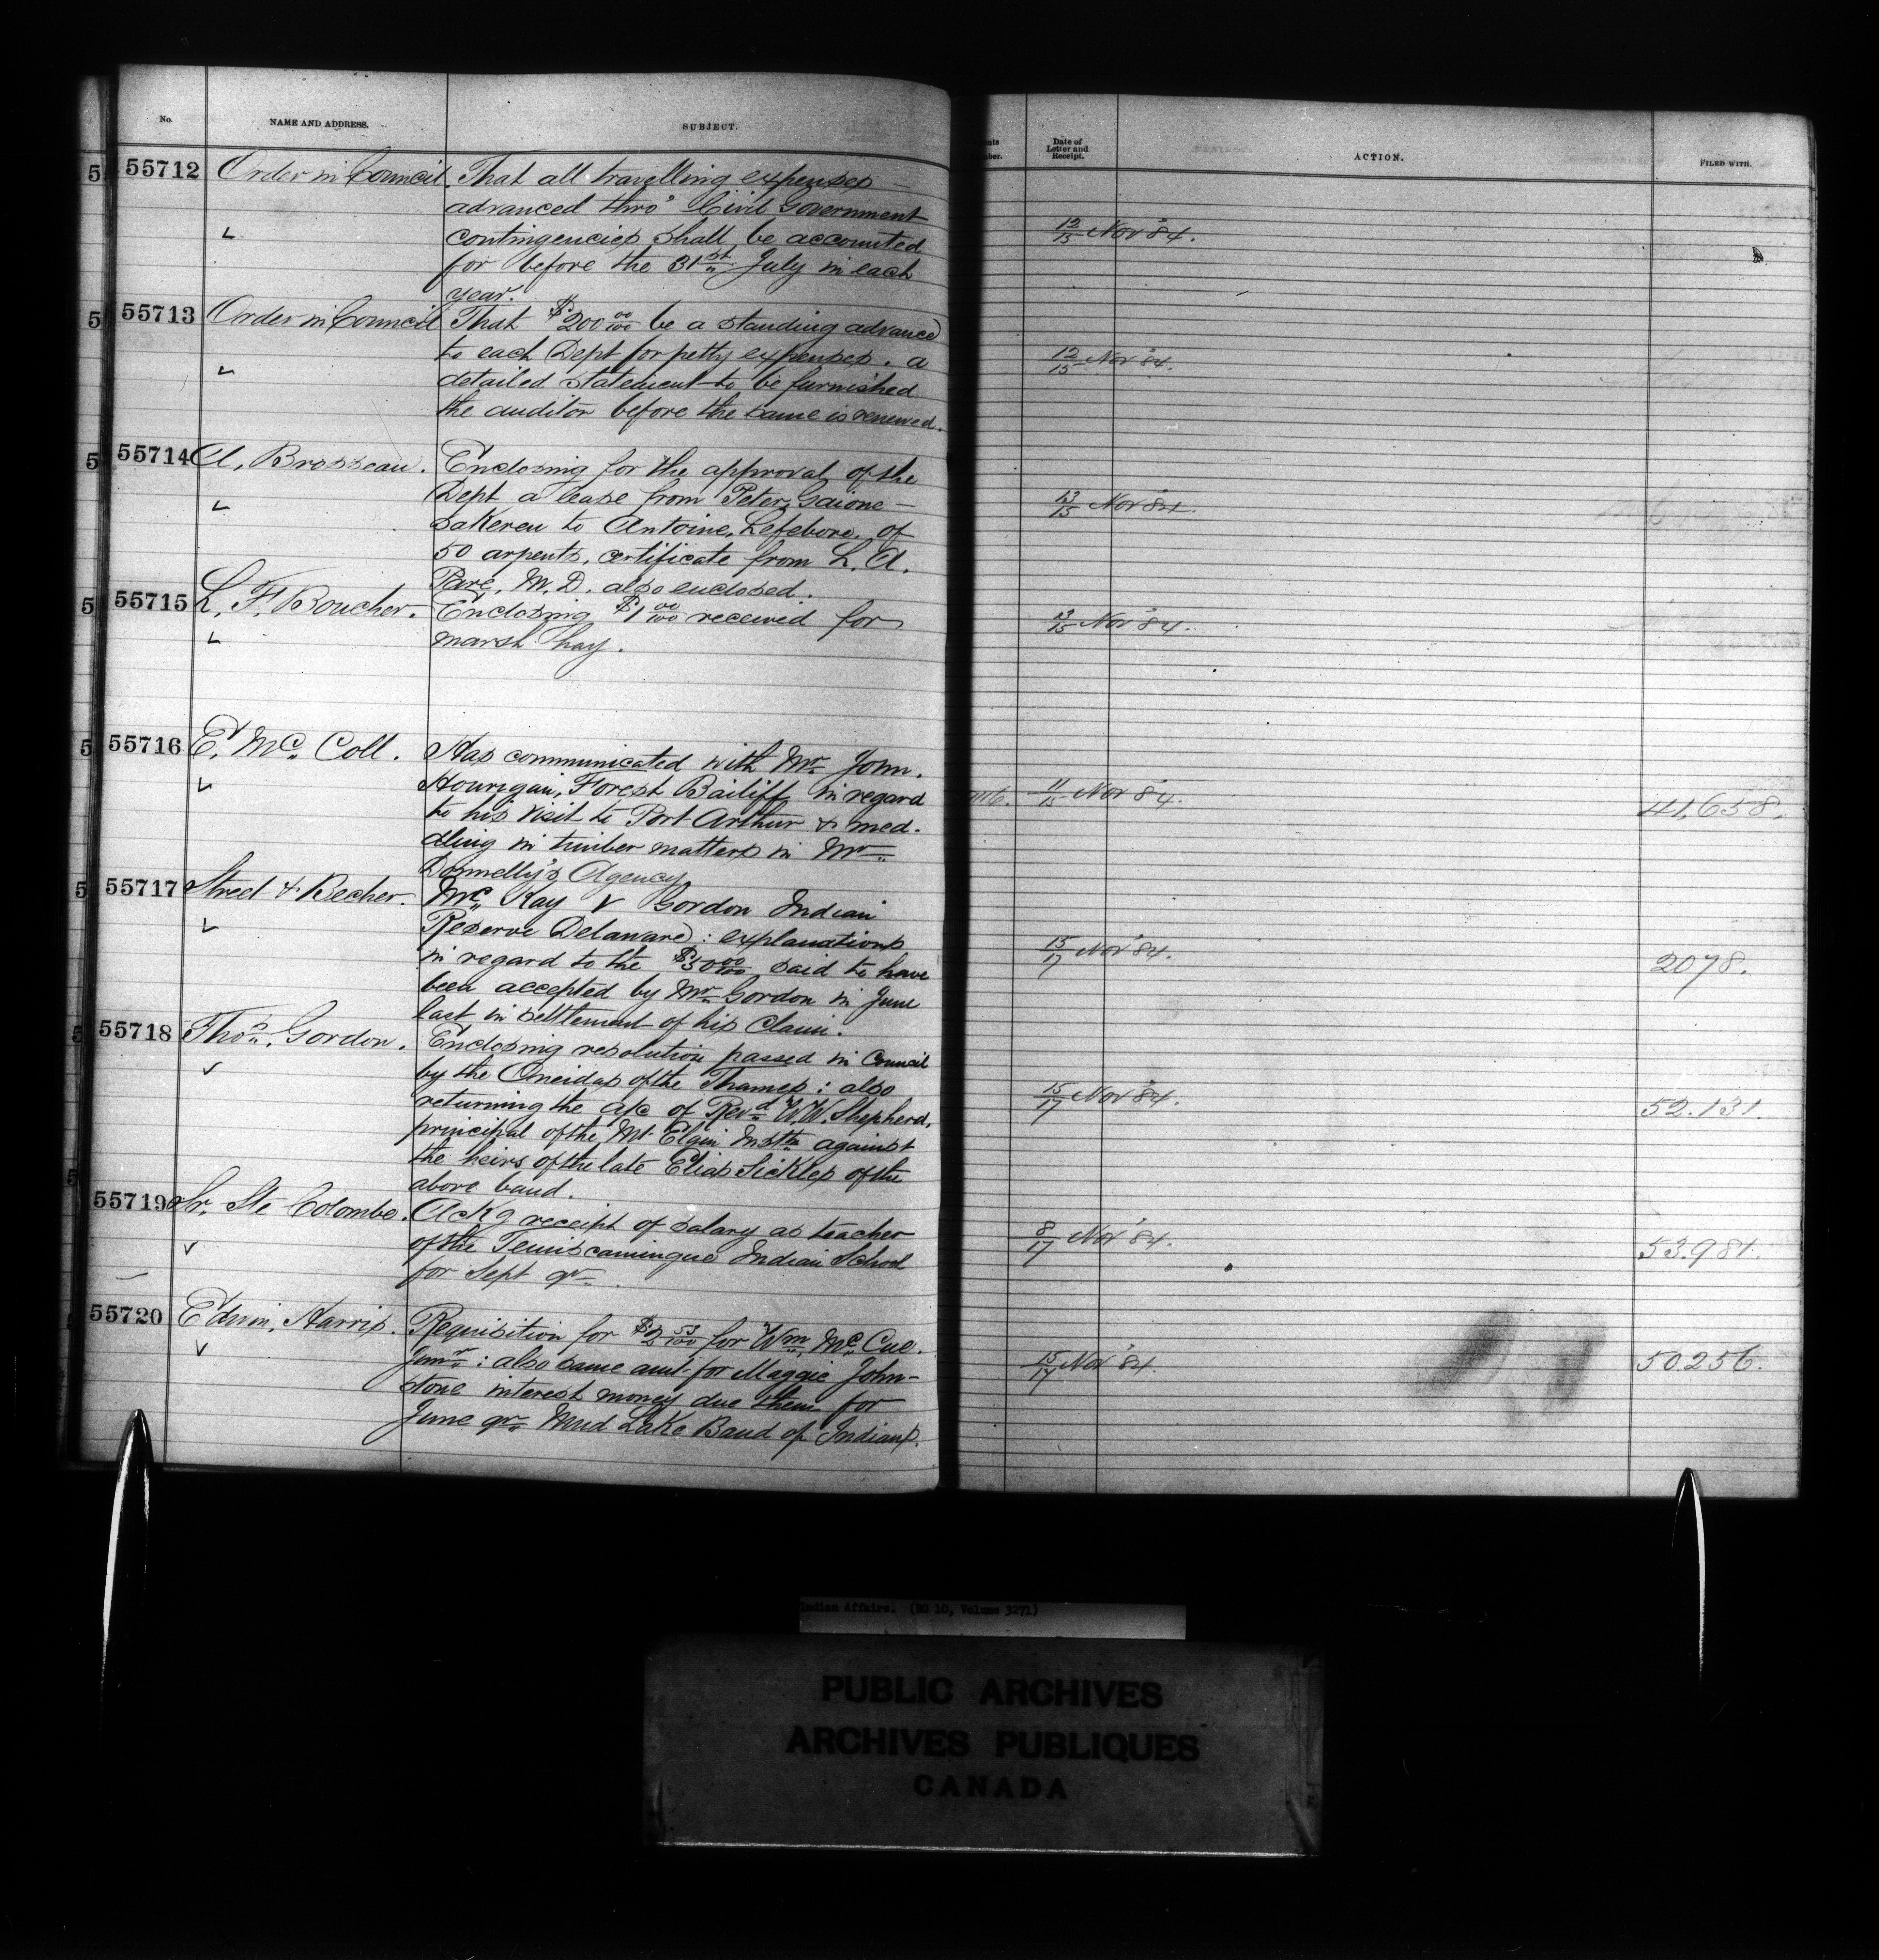 No. NAME AND ADDRESS. SUBJECT. Date of Letter and Receipt. ACTION. FILED WITH.
55712 Order in Council. That all travelling expenses
advanced thro' Civil Government
contingencies shall be accounted 12/15 Nov '84.
for before the 31st July in each
year.
55713 Order in Council That $200 00/100 be a standing advance
to each Dept for petty expenses. a 12/15 Nov '84.
detailed statement to be furnished
the auditor before the same is renewed.
55714 A. Brosseau. Enclosing for the approval of the
Dept a lease from Peter Gaione- 13/15 Nov '84.
sakereu to Antoine Lefebvre of
50 arpents, certificate from L. A.
Paré, M.D. also enclosed.
55715 L. F. Boucher. Enclosing $1 00/100 received for 13/15 Nov '84.
marsh hay.
55716 E. Mc. Coll. Has communicated with Mr. John.
Hourigan, Forest Bailiff in regard 11/15 Nov '84. 41,658.
to his visit to Port Arthur & med-
dling in timber matters in Mr.
Donnelly's Agency
55717 Street & Becher. Mc. Kay v Gordon Indian
Reserve Delaware: explanations
in regard to the $50 00/100 said to have 15/17 Nov '84. 2078.
been accepted by Mr. Gordon in June
last in settlement of his claim.
55718 Thos. Gordon. Enclosing resolution passed in Council
by the Oneidas of the Thames: also 15/17 Nov '84. 52.131.
returning the a/c of Revd W.W. Shepherd,
principal of the Mt Elgin Instn against
the heirs of the late Elias Sickles of the
above band.
55719 Sr. Ste Colombe. Ackg receipt of salary as teacher
of the Temiscamingue Indian School 8/17 Nov '84. 53.981.
for Sept qr.
55720 Edwin Harris. Requisition for $2 53/100 for Wm. Mc. Cue.
Junr.: also same amt for Maggie John- 15/17 Nov '84. 50256.
stone interest money due them for
June qr. Mud Lake Band of Indians.
Indian Affairs. (RG 10, Volume 3271)
PUBLIC ARCHIVES
ARCHIVES PUBLIQUES
CANADA